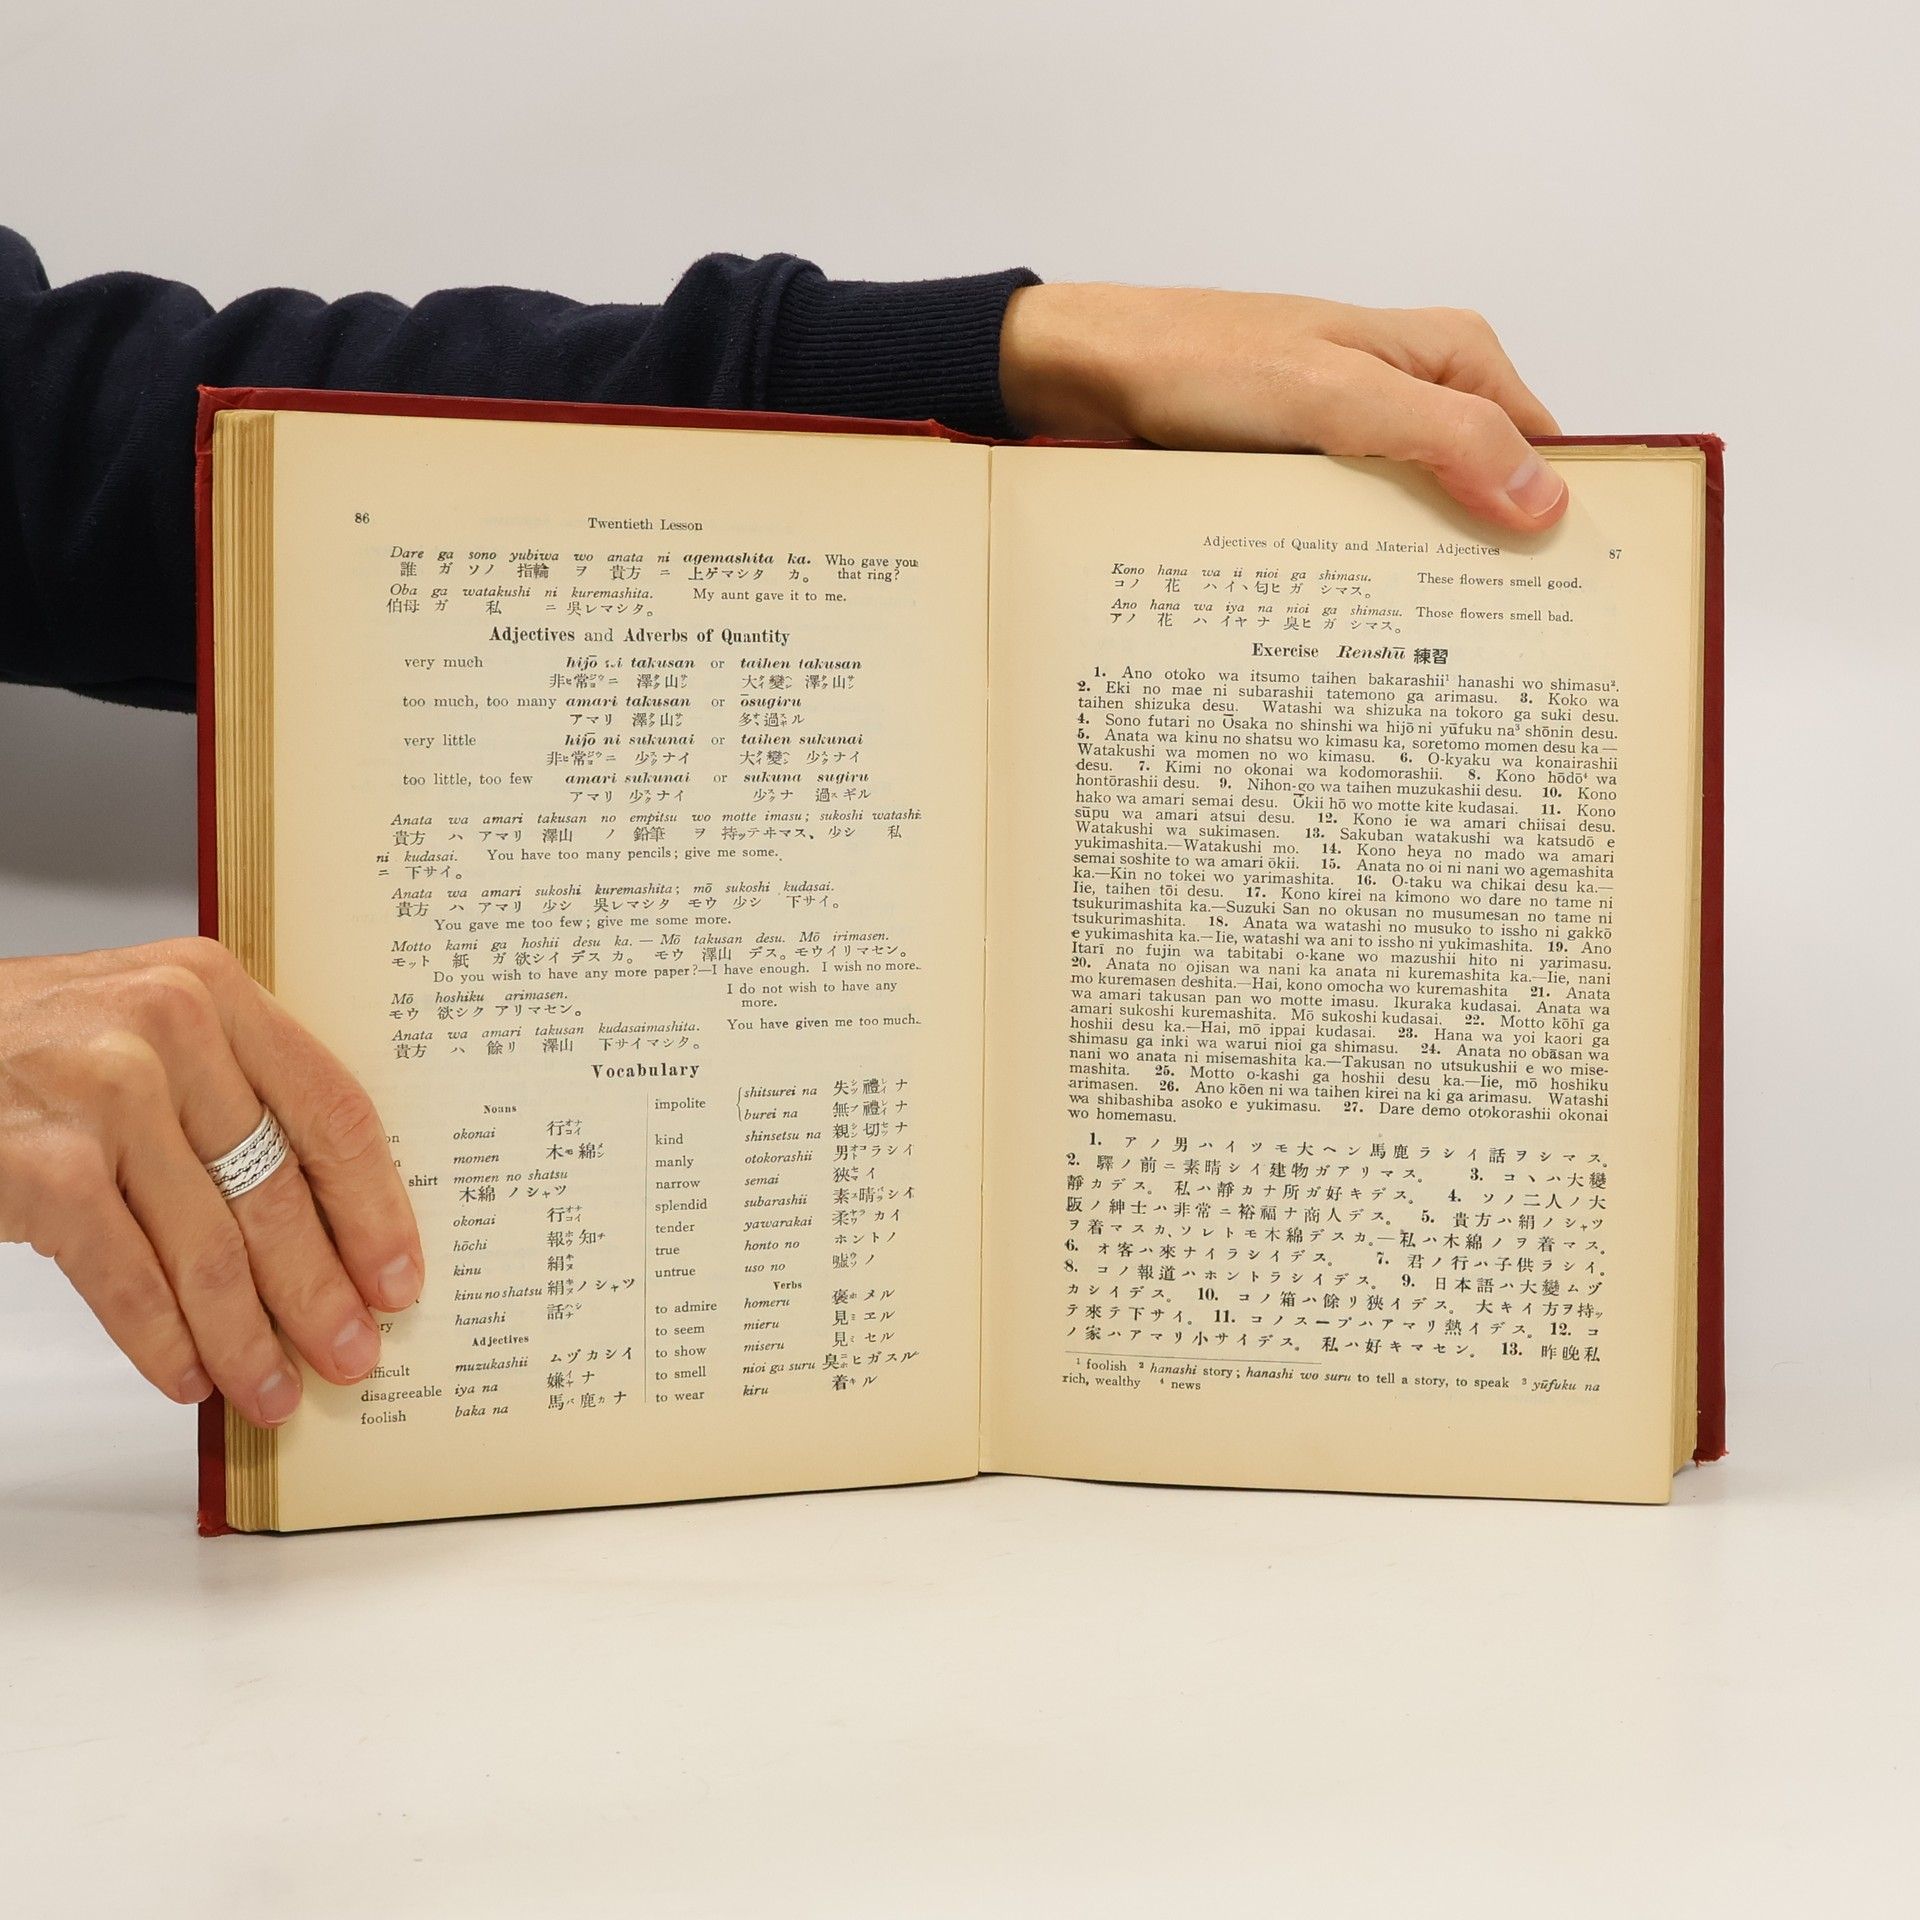 86
Twentieth Lesson
Dare ga sono yubiwa wo anata ni agemashita ka. Who gave you
誰 ガ ソノ 指輪 ヲ 貴方 ニ 上ゲマシタ カ。 that ring?
Oba ga watakushi ni kuremashita. My aunt gave it to me.
伯母 ガ 私 ニ 呉レマシタ。
Adjectives and Adverbs of Quantity
very much hijō ni takusan or taihen takusan
非ヒ常ジヨウニ 澤タク山サン 大タイ變ヘン 澤タク山サン
too much, too many amari takusan or ōsugiru
アマリ 澤タク山サン 多オホ過スギル
very little hijō ni sukunai or taihen sukunai
非ヒ常ジヨウニ 少スクナイ 大タイ變ヘン 少スクナイ
too little, too few amari sukunai or sukuna sugiru
アマリ 少スクナイ 少スクナ 過スギル
Anata wa amari takusan no empitsu wo motte imasu; sukoshi watashi
貴方 ハ アマリ 澤山 ノ 鉛筆 ヲ 持ッテヰマス、 少シ 私
ni kudasai. You have too many pencils; give me some.
ニ 下サイ。
Anata wa amari sukoshi kuremashita; mō sukoshi kudasai.
貴方 ハ アマリ 少シ 呉レマシタ モウ 少シ 下サイ。
You gave me too few; give me some more.
Motto kami ga hoshii desu ka. — Mō takusan desu. Mō irimasen.
モット 紙 ガ 欲シイ デス カ。 モウ 澤山 デス。モウイリマセン。
Do you wish to have any more paper?—I have enough. I wish no more.
Mō hoshiku arimasen. I do not wish to have any
モウ 欲シク アリマセン。 more.
Anata wa amari takusan kudasaimashita. You have given me too much.
貴方 ハ 餘リ 澤山 下サイマシタ。
Vocabulary
Nouns
okonai 行オコナイ
momen 木モ綿メン
shirt momen no shatsu
木綿 ノ シャツ
okonai 行オコナイ
hōchi 報ホウ知チ
kinu 絹キヌ
kinu no shatsu 絹キヌノシャツ
hanashi 話ハナシ
Adjectives
muzukashii ムヅカシイ
disagreeable iya na 嫌イヤナ
foolish baka na 馬バ鹿カナ
impolite shitsurei na 失シツ禮レイナ
burei na 無ブ禮レイナ
kind shinsetsu na 親シン切セツナ
manly otokorashii 男オトコラシイ
narrow semai 狹セマイ
splendid subarashii 素ス晴バラシイ
tender yawarakai 柔ヤワラカイ
true honto no ホントノ
untrue uso no 嘘ウソノ
Verbs
to admire homeru 褒ホメル
to seem mieru 見ミエル
to show miseru 見ミセル
to smell nioi ga suru 臭ニホヒガスル
to wear kiru 着キル
Adjectives of Quality and Material Adjectives
87
Kono hana wa ii nioi ga shimasu. These flowers smell good.
コノ 花 ハ イヽ匂ヒ ガ シマス。
Ano hana wa iya na nioi ga shimasu. Those flowers smell bad.
アノ 花 ハ イヤ ナ 臭ヒ ガ シマス。
Exercise Renshū 練習
1. Ano otoko wa itsumo taihen bakarashii¹ hanashi wo shimasu².
2. Eki no mae ni subarashii tatemono ga arimasu. 3. Koko wa
taihen shizuka desu. Watashi wa shizuka na tokoro ga suki desu.
4. Sono futari no Ōsaka no shinshi wa hijō ni yūfuku na³ shōnin desu.
5. Anata wa kinu no shatsu wo kimasu ka, soretomo momen desu ka —
Watakushi wa momen no wo kimasu. 6. O-kyaku wa konairashii
desu. 7. Kimi no okonai wa kodomorashii. 8. Kono hōdō⁴ wa
hontōrashii desu. 9. Nihon-go wa taihen muzukashii desu. 10. Kono
hako wa amari semai desu. Ōkii hō wo motte kite kudasai. 11. Kono
sūpu wa amari atsui desu. 12. Kono ie wa amari chiisai desu.
Watakushi wa sukimasen. 13. Sakuban watakushi wa katsudō e
yukimashita.—Watakushi mo. 14. Kono heya no mado wa amari
semai soshite to wa amari ōkii. 15. Anata no oi ni nani wo agemashita
ka.—Kin no tokei wo yarimashita. 16. O-taku wa chikai desu ka.—
Iie, taihen tōi desu. 17. Kono kirei na kimono wo dare no tame ni
tsukurimashita ka.—Suzuki San no okusan no musumesan no tame ni
tsukurimashita. 18. Anata wa watashi no musuko to issho ni gakkō
e yukimashita ka.—Iie, watashi wa ani to issho ni yukimashita. 19. Ano
Itarī no fujin wa tabitabi o-kane wo mazushii hito ni yarimasu.
20. Anata no ojisan wa nani ka anata ni kuremashita ka.—Iie, nani
mo kuremasen deshita.—Hai, kono omocha wo kuremashita 21. Anata
wa amari takusan pan wo motte imasu. Ikuraka kudasai. Anata wa
amari sukoshi kuremashita. Mō sukoshi kudasai. 22. Motto kōhī ga
hoshii desu ka.—Hai, mō ippai kudasai. 23. Hana wa yoi kaori ga
shimasu ga inki wa warui nioi ga shimasu. 24. Anata no obāsan wa
nani wo anata ni misemashita ka.—Takusan no utsukushii e wo mise-
mashita. 25. Motto o-kashi ga hoshii desu ka.—Iie, mō hoshiku
arimasen. 26. Ano kōen ni wa taihen kirei na ki ga arimasu. Watashi
wa shibashiba asoko e yukimasu. 27. Dare demo otokorashii okonai
wo homemasu.
1. アノ男ハイツモ大ヘン馬鹿ラシイ話ヲシマス。
2. 驛ノ前ニ素晴シイ建物ガアリマス。 3. コヽハ大變
靜カデス。 私ハ靜カナ所ガ好キデス。 4. ソノ二人ノ大
阪ノ紳士ハ非常ニ裕福ナ商人デス。 5. 貴方ハ絹ノシャツ
ヲ着マスカ、ソレトモ木綿デスカ。—私ハ木綿ノヲ着マス。
6. オ客ハ來ナイラシイデス。 7. 君ノ行ハ子供ラシイ。
8. コノ報道ハホントラシイデス。 9. 日本語ハ大變ムヅ
カシイデス。 10. コノ箱ハ餘リ狹イデス。 大キイ方ヲ持ッ
テ來テ下サイ。 11. コノスープハアマリ熱イデス。 12. コ
ノ家ハアマリ小サイデス。 私ハ好キマセン。 13. 昨晩私
¹ foolish ² hanashi story; hanashi wo suru to tell a story, to speak ³ yūfuku na
rich, wealthy ⁴ news